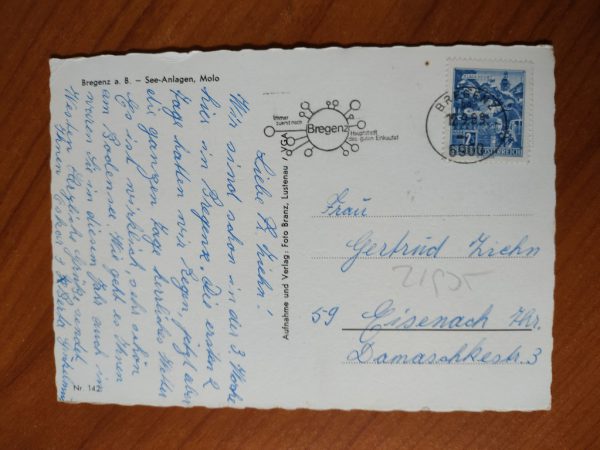 Bregenz a. B. – See-Anlagen, Molo
Liebe Fr. Ziehn!
Wir sind schon in der 3. Woche
hier in Bregenz. Die ersten 2
Tage hatten wir Regen, jetzt aber
die ganzen Tage herrliches Wetter
Es ist wirklich sehr schön
am Bodensee. Wie geht es Ihnen
werden Sie in diesem Jahr auch in
Westen
Herzliche Grüße sendet
Ihnen Oskar
Nr. 142
Aufnahme und Verlag: Foto Branz, Lustenau / VGA
Immer
zuerst nach
Bregenz
Hauptstadt
des guten Einkaufs!
BREGENZ
6900
ÖSTERREICH
Frau
Gertrud Ziehn
59 Eisenach Thr.
Damaschkestr. 3